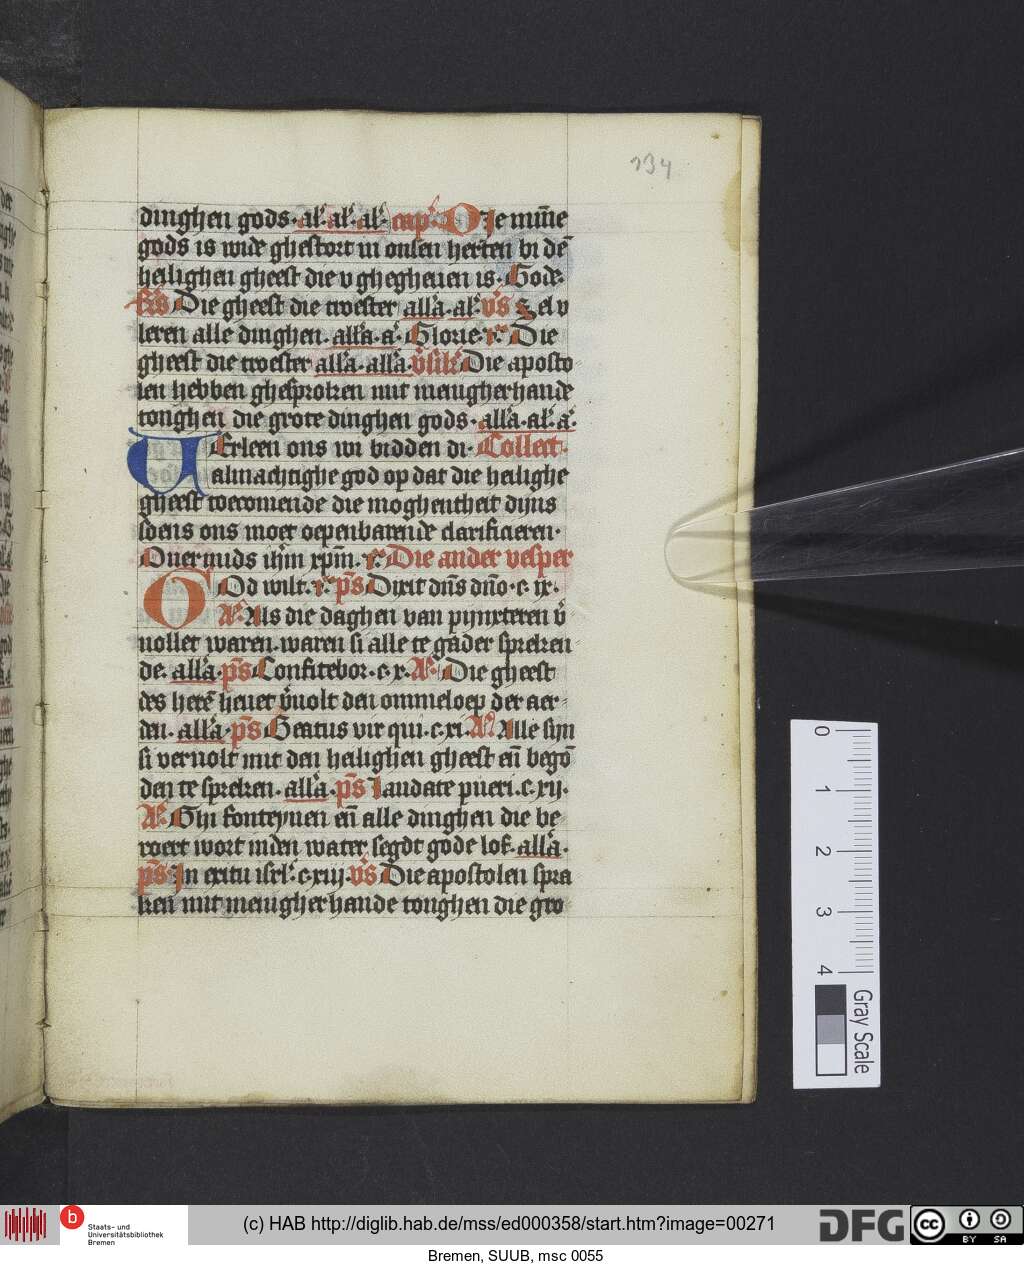 134
dinghen gods. al'. al'. al'. cap'. Die mīne
gods is wide ghestort in onsen herten bi dē
heilighen gheest die v ghegheuen is. Gode.
Die gheest die troester all'a. al'. v's Sel v
leren alle dinghen. all'a. a'. Glorie. r'. Die
gheest die troester all'a. all'a. Die aposto
len hebben ghesproken mit menigherhande
tonghen die grote dinghen gods. all'a. al'. a'.
VErleen ons wi bidden di. Collect.
almachtighe god op dat die heilighe
gheest toecomende die moghentheit dijns
soens ons moet oepenbarende clarificieren.
Ouermids ih'm xpm̄. r'. Die ander vesper
GOd wilt. r'. ps̄ Dixit dn̄s dn̄o. c. ix.
A'. Als die daghen van pijnxteren v'
uollet waren. waren si alle te gader spreken
de. all'a. ps̄ Confitebor. c. x. A'. Die gheest
des herē heuet v'uolt den ommeloep der aer
den. all'a. ps̄ Beatus vir qui. c. xi. A'. Alle sijn
si veruolt mit den heilighen gheest en̄ begō
den te spreken. all'a. ps̄ Laudate pueri. c. xij.
A'. Ghi fonteynen en̄ alle dinghen die be
roert wort inden water segdt gode lof. all'a.
ps̄ In exitu isrl'. c. xiij. v's Die apostolen spra
ken mit menigherhande tonghen die gro
0 1 2 3 4
Gray Scale
b
Staats- und
Universitätsbibliothek
Bremen
(c) HAB http://diglib.hab.de/mss/ed000358/start.htm?image=00271
DFG
cc BY SA
Bremen, SUUB, msc 0055